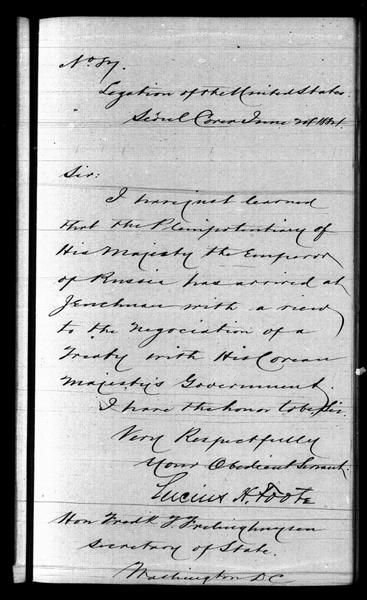 No 87.
Legation of the United States.
Seoul Corea June 20th 1884.
Sir:
I have just learned
that the Plenipotentiary of
His Majesty the Emperor
of Russia has arrived at
Jenchuan with a view
to the Negociation of a
Treaty with His Corean
Majesty's Government.
I have the honor to be Sir
Very Respectfully
Your Obedient Servant.
Lucius H. Foote
Hon Fredk T. Frelinghuysen
Secretary of State.
Washington D.C